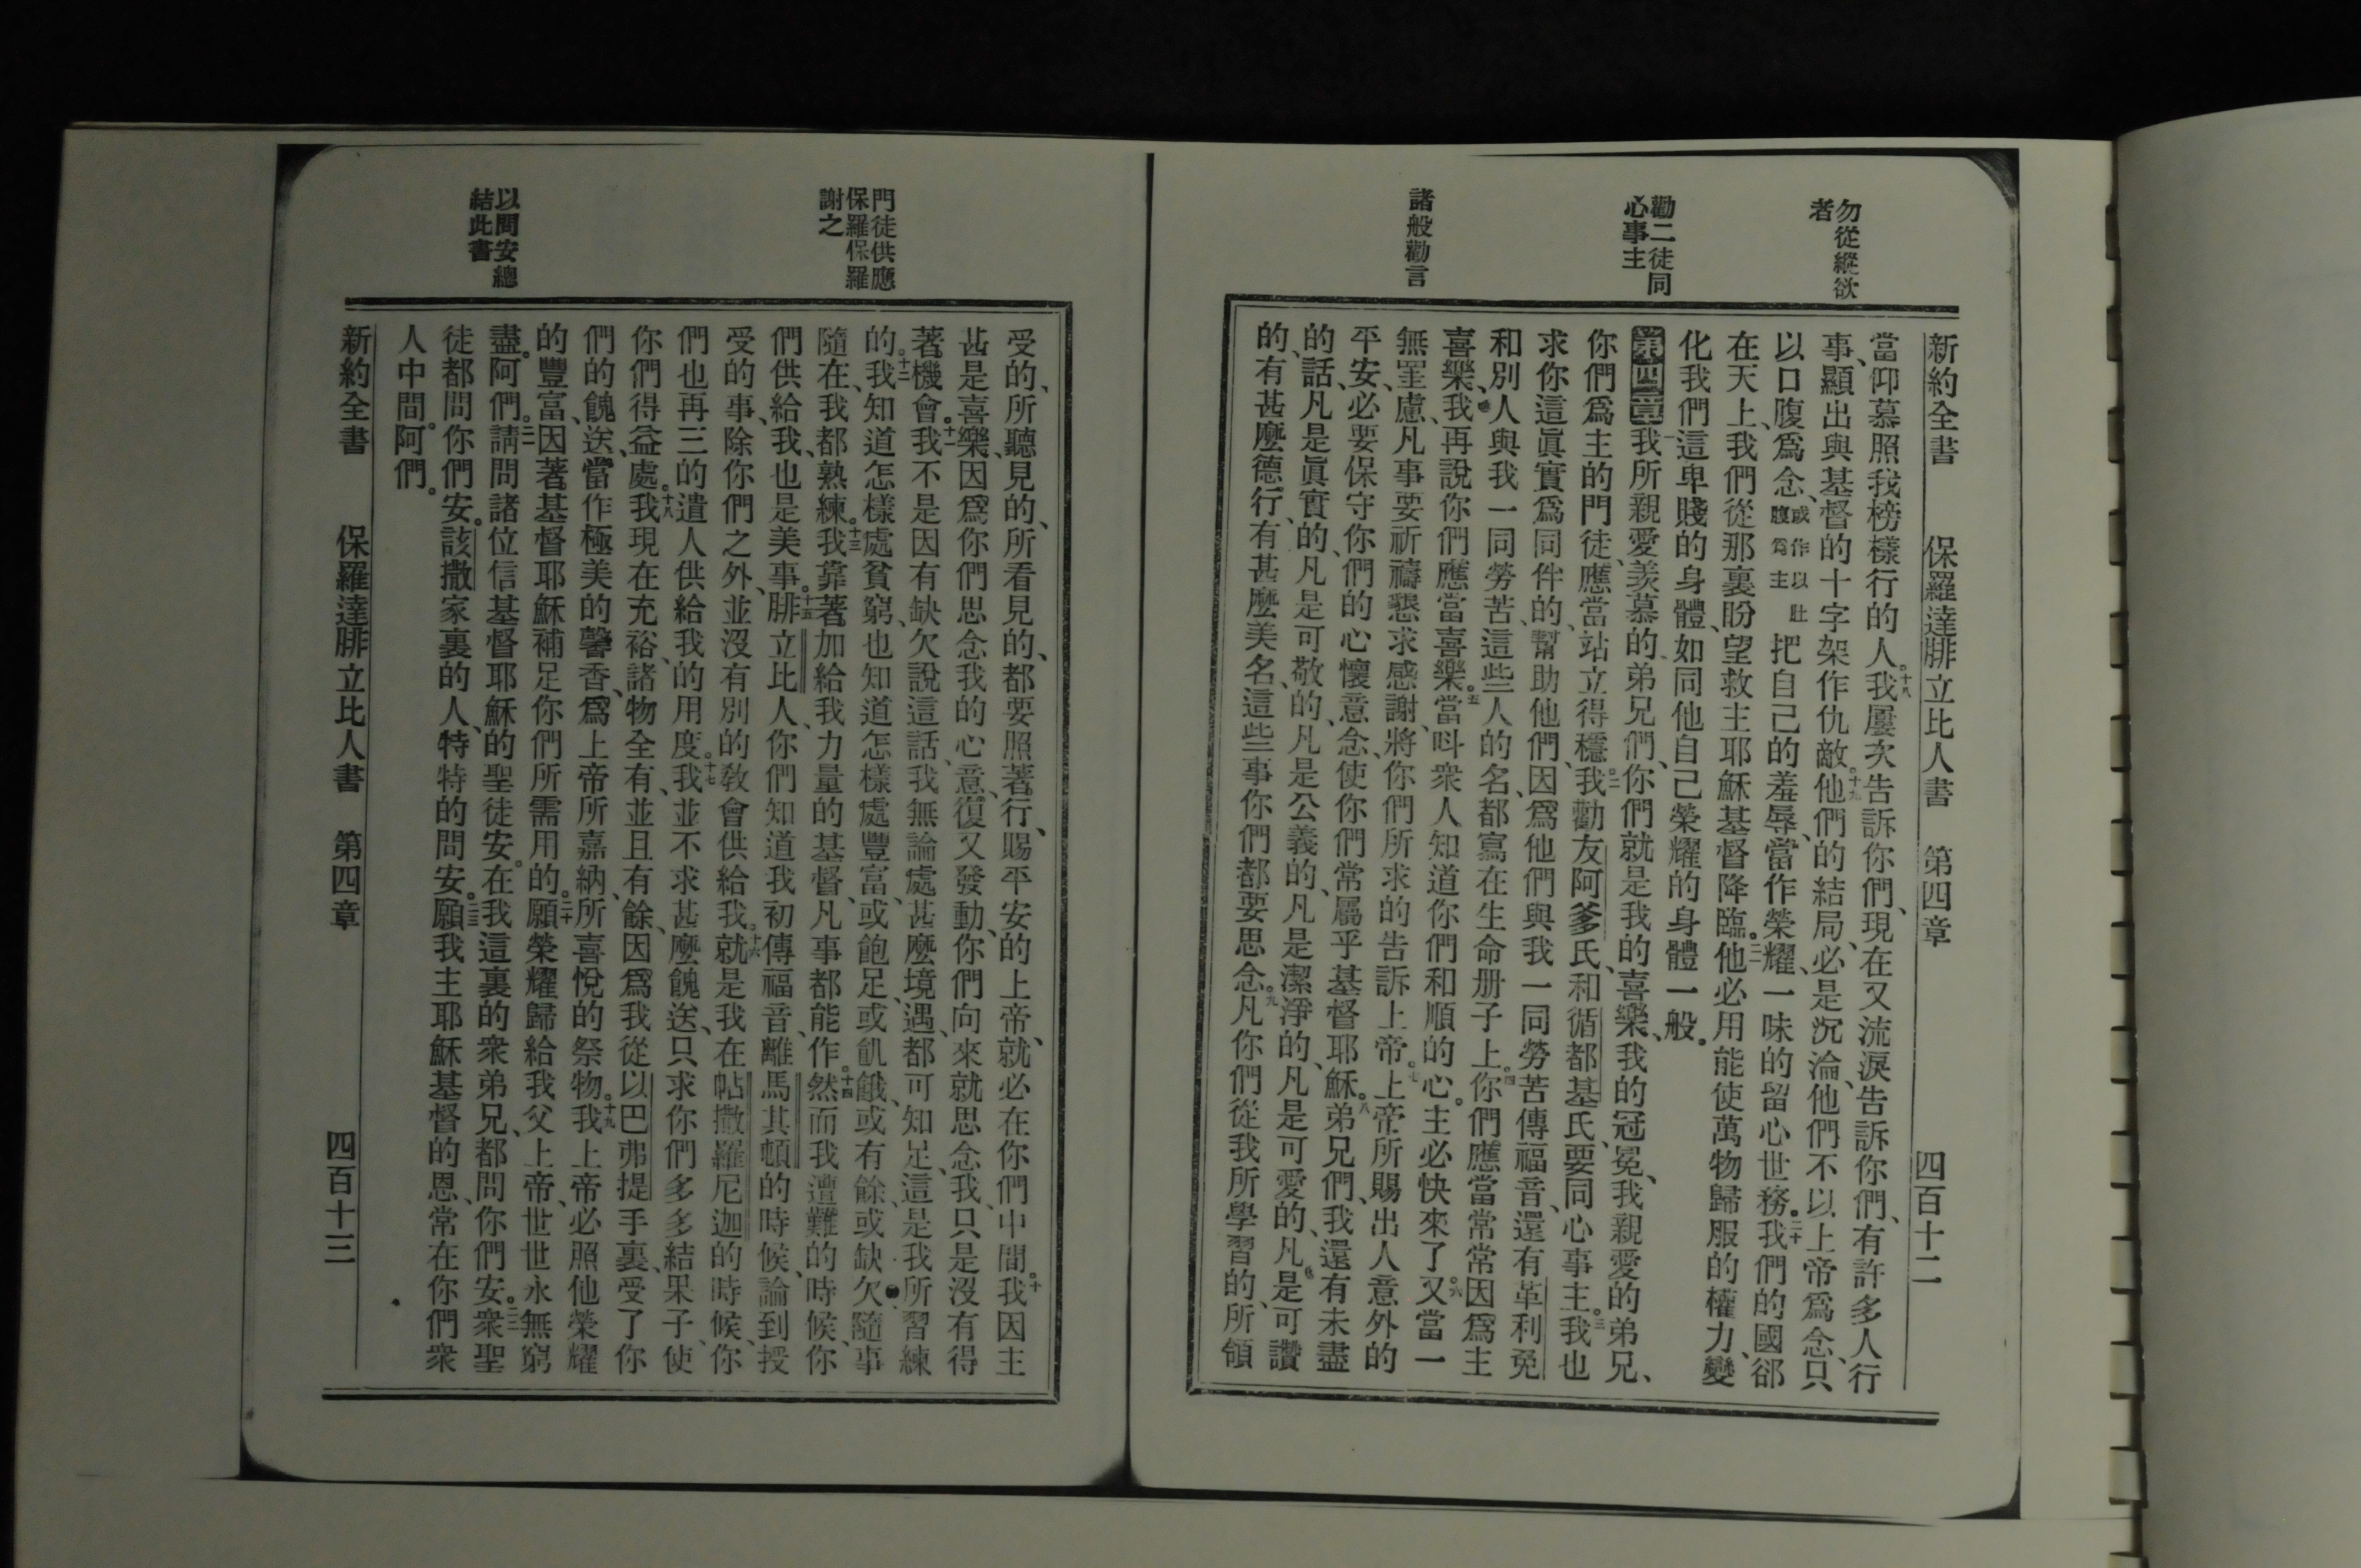 勿從縱欲
者
勸二徒同
心事主
諸般勸言
新約全書 保羅達腓立比人書 第四章 四百十二
當仰慕照我榜樣行的人。十八我屢次告訴你們、現在又流淚告訴你們、有許多人行
事、顯出與基督的十字架作仇敵。十九他們的結局、必是沉淪、他們不以上帝爲念、只
以口腹爲念、或作以肚腹爲主把自己的羞辱、當作榮耀、一味的留心世務。二十我們的國郤
在天上、我們從那裏盼望救主耶穌基督降臨。二一他必用能使萬物歸服的權力、變
化我們這卑賤的身體、如同他自己榮耀的身體一般。
第四章我所親愛羨慕的弟兄們、你們就是我的喜樂、我的冠冕、我親愛的弟兄、
你們爲主的門徒、應當站立得穩。二我勸友阿爹氏、和循都基氏、要同心事主。三我也
求你這眞實爲同伴的、幫助他們、因爲他們與我一同勞苦傳福音、還有革利免
和別人與我一同勞苦、這些人的名、都寫在生命册子上。四你們應當常常因爲主
喜樂、我再說你們應當喜樂。五當呌衆人知道你們和順的心。主必快來了。六又當一
無罣慮、凡事要祈禱懇求感謝、將你們所求的告訴上帝。七上帝所賜出人意外的
平安、必要保守你們的心懷意念、使你們常屬乎基督耶穌。八弟兄們、我還有未盡
的話、凡是眞實的、凡是可敬的、凡是公義的、凡是潔淨的、凡是可愛的、凡是可讚
的、有甚麽德行、有甚麽美名、這些事你們都要思念。九凡你們從我所學習的、所領
門徒供應
保羅保羅
謝之
以問安總
結此書
受的、所聽見的、所看見的、都要照著行、賜平安的上帝、就必在你們中間。十我因主
甚是喜樂、因爲你們思念我的心意、復又發動、你們向來就思念我、只是沒有得
著機會。十一我不是因有缺欠說這話、我無論處甚麽境遇、都可知足、這是我所習練
的。十二我知道怎樣處貧窮、也知道怎樣處豐富、或飽足、或飢餓、或有餘、或缺欠、隨事
隨在、我都熟練。十三我靠著加給我力量的基督、凡事都能作。十四然而我遭難的時候、你
們供給我、也是美事。十五腓立比人、你們知道我初傳福音、離馬其頓的時候、論到授
受的事、除你們之外、並沒有別的敎會供給我。十六就是我在帖撒羅尼迦的時候、你
們也再三的遺人供給我的用度。十七我並不求甚麽餽送、只求你們多多結果子、使
你們得益處。十八我現在充裕、諸物全有、並且有餘、因爲我從以巴弗提手裏、受了你
們的餽送、當作極美的馨香、爲上帝所嘉納、所喜悅的祭物。十九我上帝必照他榮耀
的豐富、因著基督耶穌補足你們所需用的。二十願榮耀歸給我父上帝、世世永無窮
盡。阿們。二一請問諸位信基督耶穌的聖徒安。在我這裏的衆弟兄、都問你們安。二二衆聖
徒都問你們安。該撒家裏的人、特特的問安。二三願我主耶穌基督的恩、常在你們衆
人中間。阿們。
新約全書 保羅達腓立比人書 第四章 四百十三